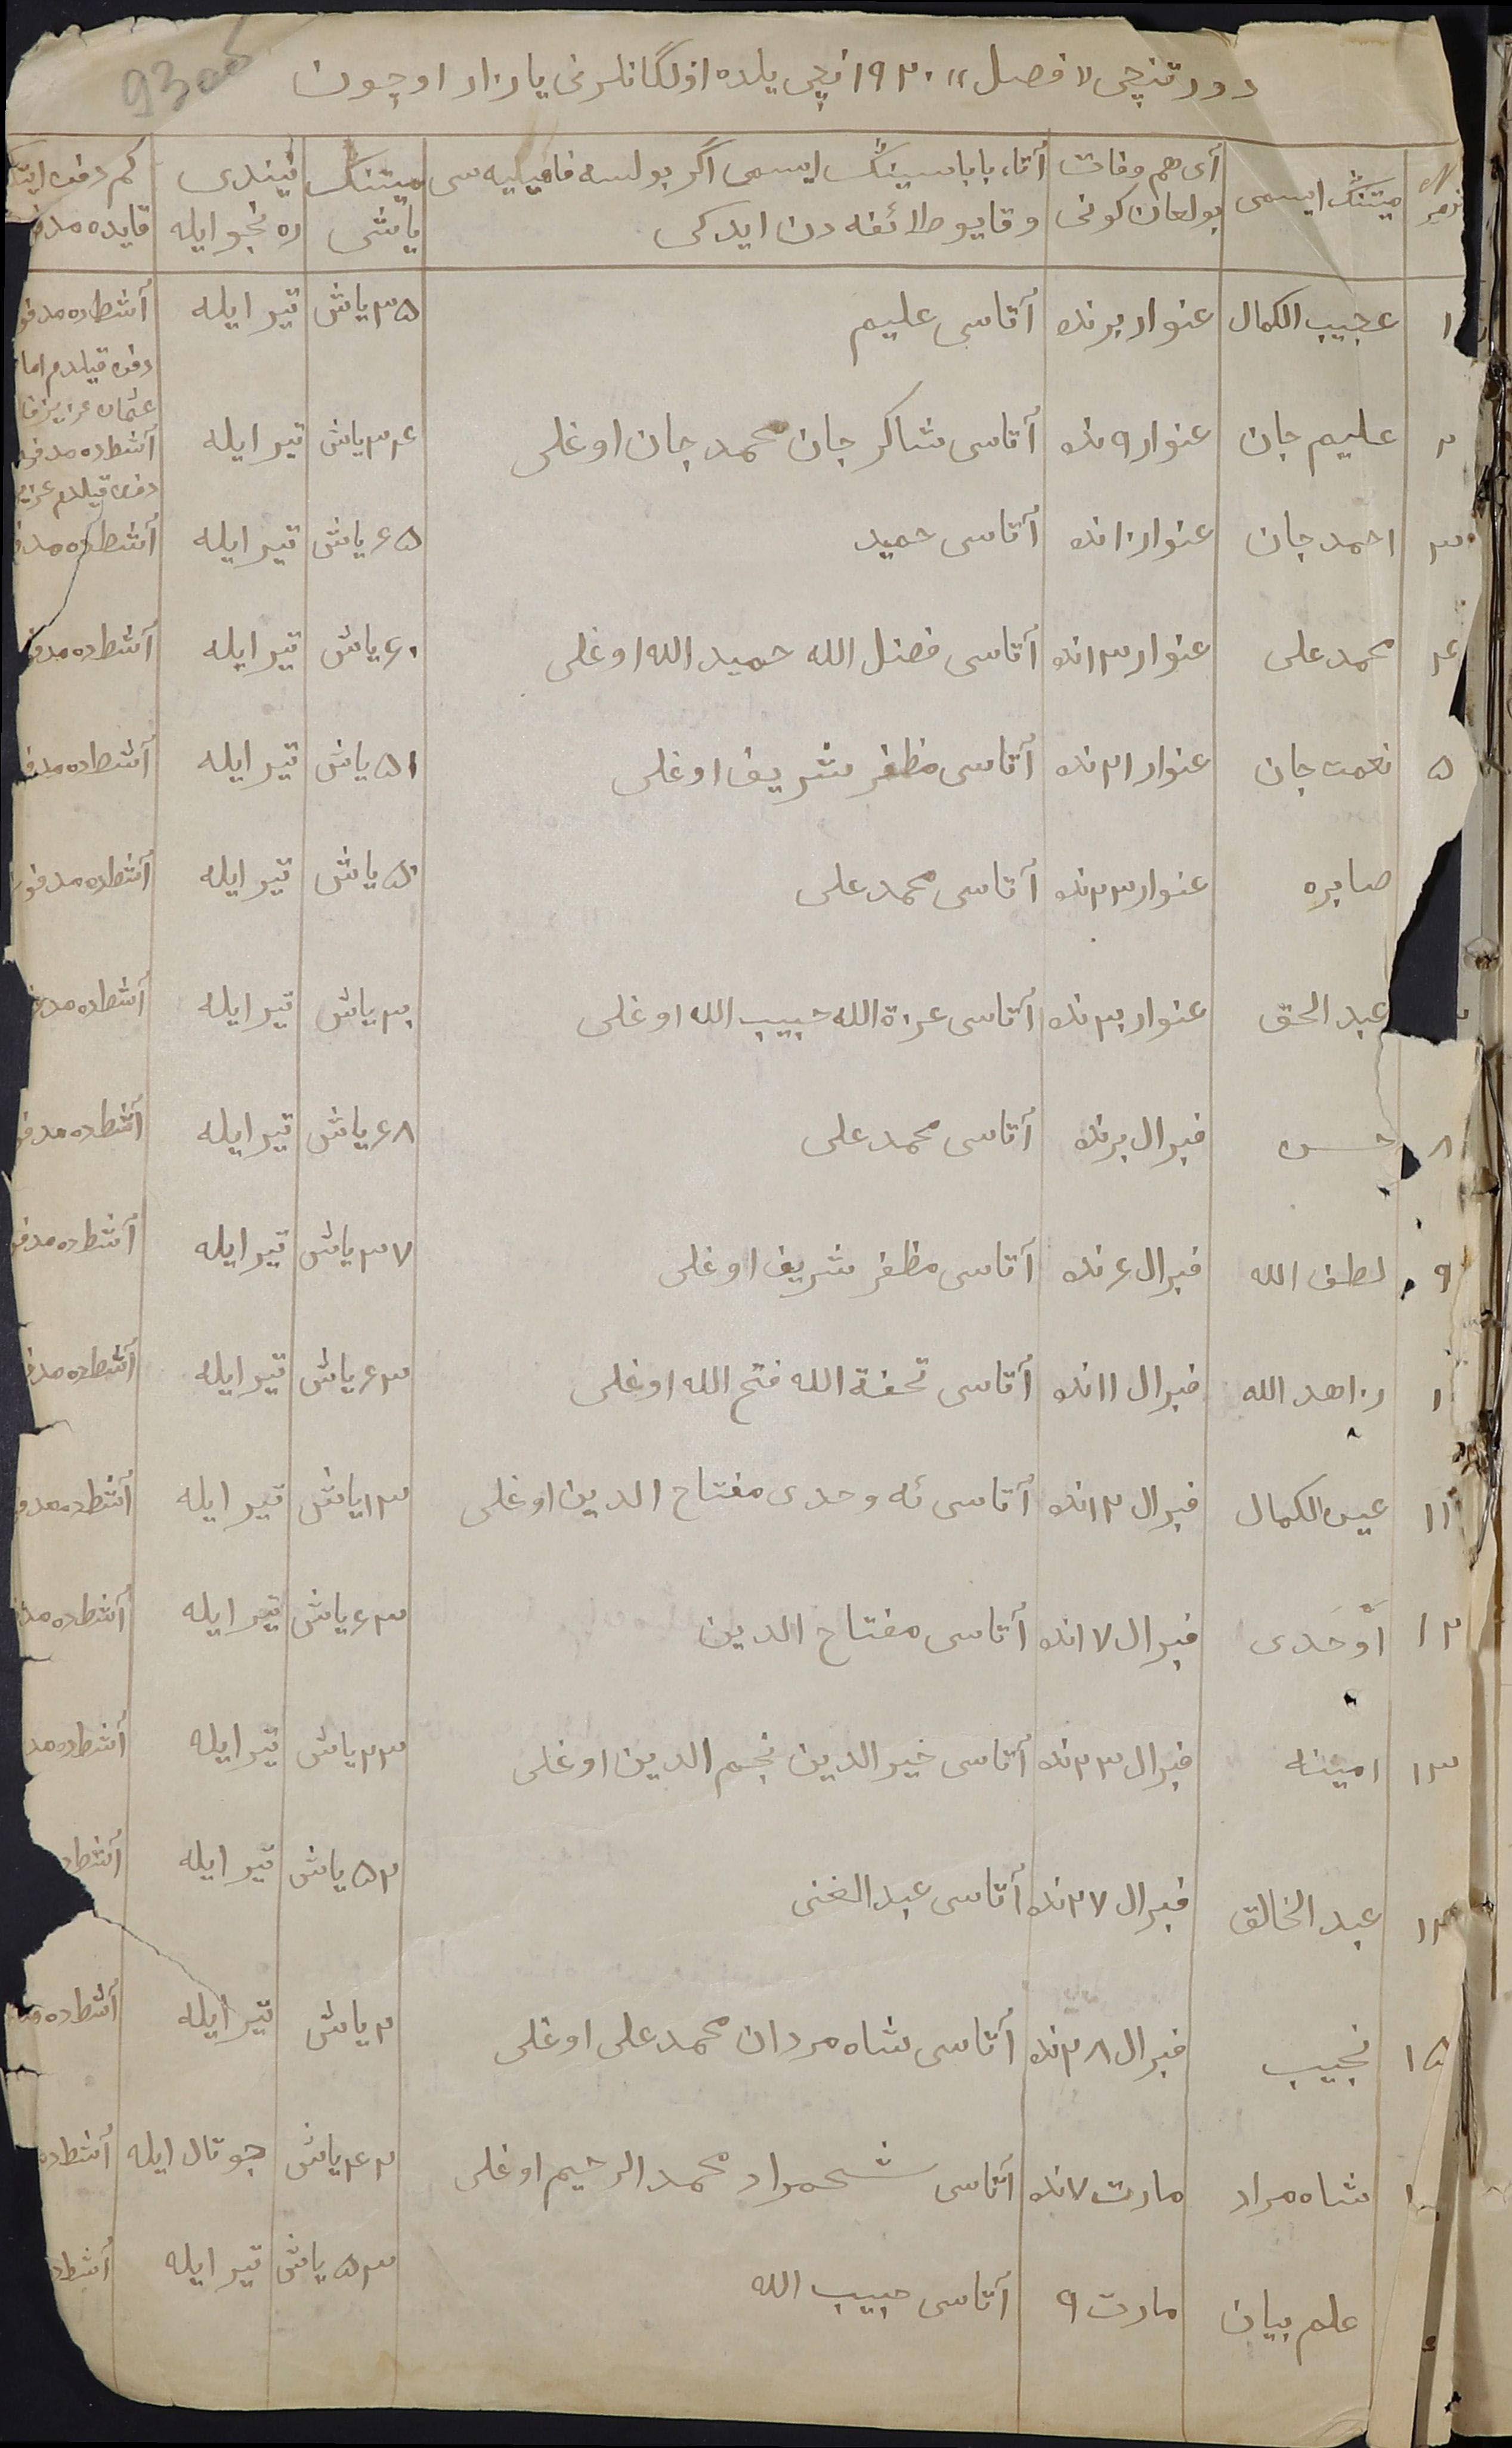 دورتنچی «فصل» ۱۹۲۰ نچی یلده اولگانلرنی یازار اوچون
№ نومر | میتنڭ ایسمی | آی هم وفات بولغان کونی | آتا، باباسینڭ ایسمی اگر بولسه فامیلیه سی وقایو طائفه دن ایدکی | میتنڭ یاشی | نیندی ره نجو ایله | کم دفن ایتک قایده مدفو
۱ | عجیب الکمال | عنوار برنده | آتاسی علیم | ۳۵ یاش | تیر ایله | آشطده مدفو دفن قیلدم اما عثمان عزیزفا
۲ | علیم جان | عنوار ۹ نده | آتاسی شاکر جان محمد جان اوغلی | ۳۴ یاش | تیر ایله | آشطده مدفو دفن قیلدم عزیز
۳ | احمد جان | عنوار ۱۰ نده | آتاسی حمید | ۶۵ یاش | تیر ایله | آشطده مدفو
۴ | محمد علی | عنوار ۱۳ نده | آتاسی فضل الله حمید الله اوغلی | ۶۰ یاش | تیر ایله | آشطده مدفو
۵ | نعمت جان | عنوار ۲۱ نده | آتاسی مظفر شریف اوغلی | ۵۱ یاش | تیر ایله | آشطده مدفو
صابره | عنوار ۲۳ نده | آتاسی محمد علی | ۵۰ یاش | تیر ایله | آشطده مدفو
عبد الحق | عنوار ۳۰ نده | آتاسی عزة الله حبیب الله اوغلی | ۳۰ یاش | تیر ایله | آشطده مدفو
۸ | حسن | فبرال برنده | آتاسی محمد علی | ۶۸ یاش | تیر ایله | آشطده مدفو
۹ | لطف الله | فبرال ۶ نده | آتاسی مظفر شریف اوغلی | ۳۷ یاش | تیر ایله | آشطده مدفو
۱ | زاهد الله | فبرال ۱۱ نده | آتاسی تحفة الله فتح الله اوغلی | ۶۳ یاش | تیر ایله | آشطده مدفو
۱۱ | عین الکمال | فبرال ۱۲ نده | آتاسی ئه وحدی مفتاح الدین اوغلی | ۱۳ یاش | تیر ایله | آشطده مدفو
۱۲ | اَوحَدی | فبرال ۱۷ نده | آتاسی مفتاح الدین | ۶۳ یاش | تیر ایله | آشطده مد
۱۳ | امینه | فبرال ۲۳ نده | آتاسی خیر الدین نجم الدین اوغلی | ۲۳ یاش | تیر ایله | آشطده مد
۱۴ | عبد الخالق | فبرال ۲۷ نده | آتاسی عبد الغنی | ۵۲ یاش | تیر ایله | آشطد
۱۵ | نجیب | فبرال ۲۸ نده | آتاسی شاه مردان محمد علی اوغلی | ۲ یاش | تیر ایله | آشطده
شاه مراد | مارت ۷ نده | آتاسی شحمراد محمد الرحیم اوغلی | ۴۲ یاش | جوتال ایله | آشطده
علم بیان | مارت ۹ | آتاسی حبیب الله | ۵۳ یاش | تیر ایله | آشطد